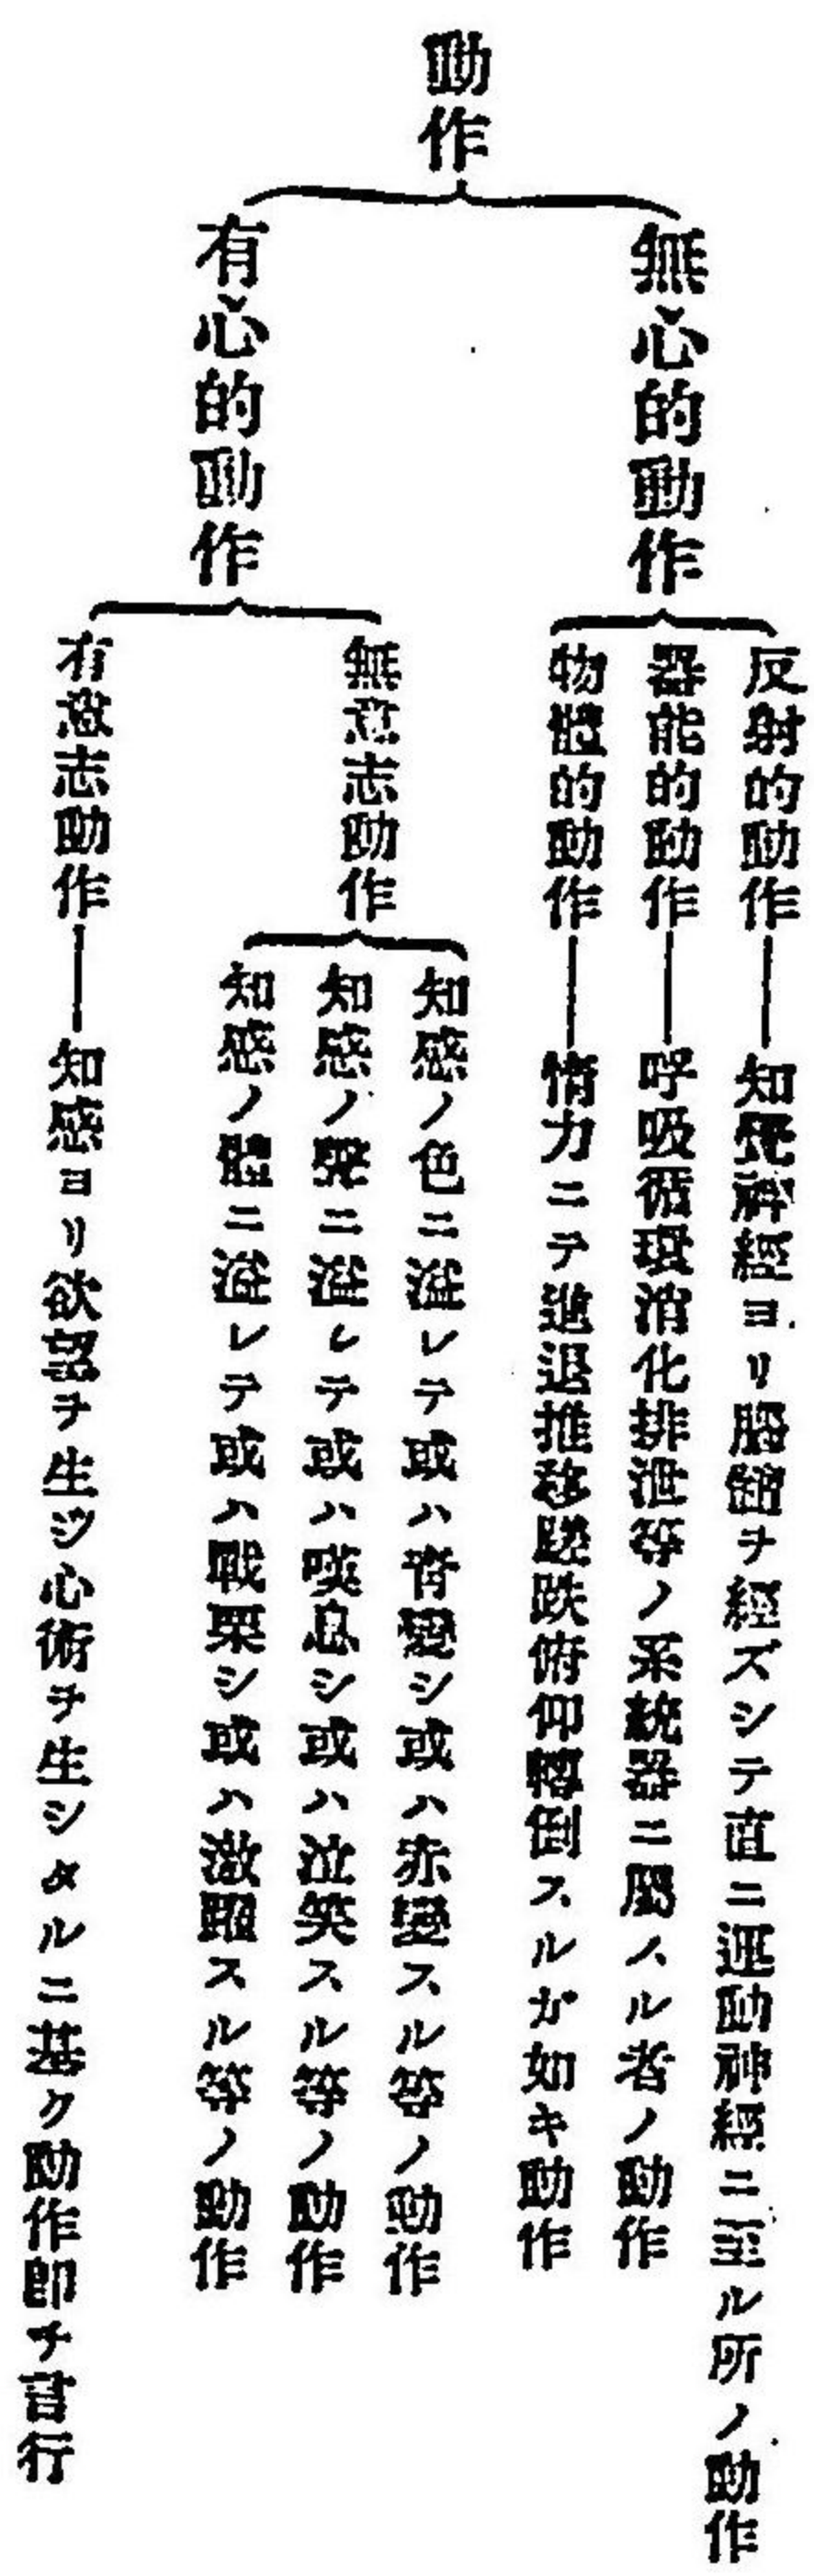 動作
無心的動作
反射的動作――知覺神經ヨリ腦髓ヲ經ズシテ直ニ運動神經ニ至ル所ノ動作
器能的動作――呼吸循環消化排泄等ノ系統器ニ屬スル者ノ動作
物體的動作――惰力ニテ進退推移蹉跌俯仰轉倒スルガ如キ動作
有心的動作
無意志動作
知感ノ色ニ溢レテ或ハ青變シ或ハ赤變スル等ノ動作
知感ノ聲ニ溢レテ或ハ嘆息シ或ハ泣笑スル等ノ動作
知感ノ體ニ溢レテ或ハ戰栗シ或ハ激躍スル等ノ動作
有意志動作――知感ヨリ欲望ヲ生ジ心術ヲ生シタルニ基ク動作即チ言行